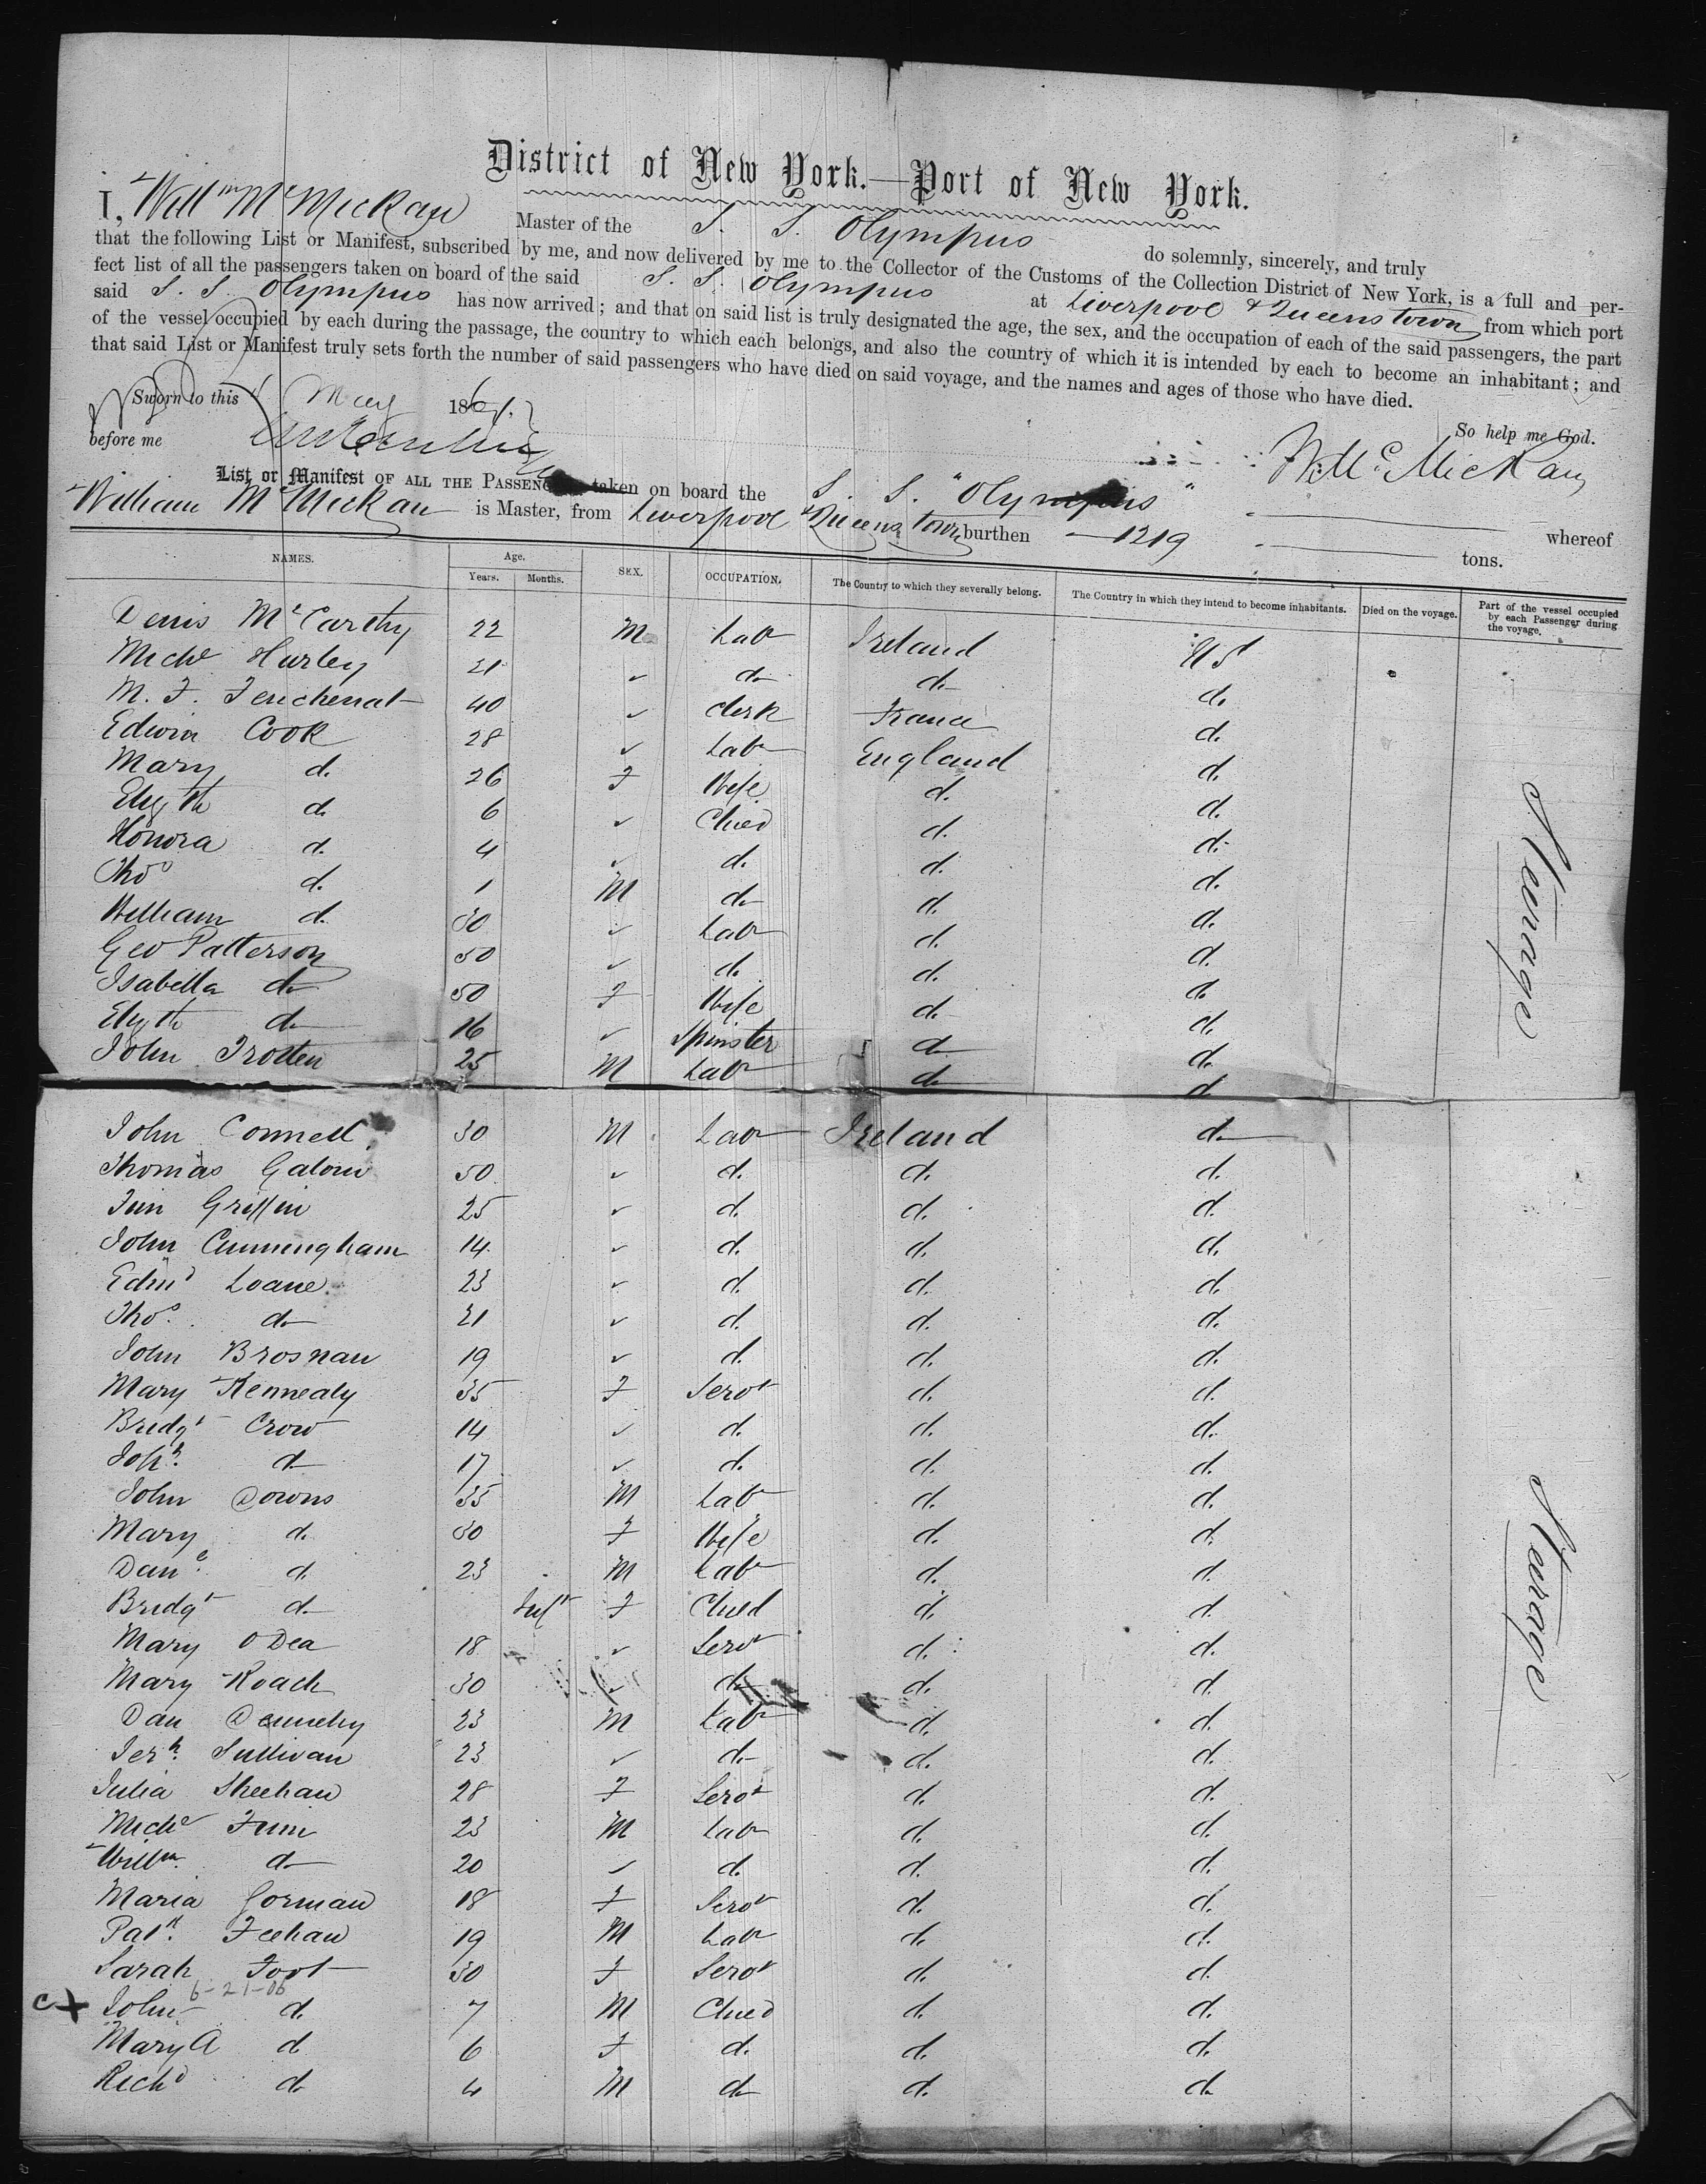 District of New York.—Port of New York.
I, Willm McMickan Master of the S. S. Olympus do solemnly, sincerely, and truly
that the following List or Manifest, subscribed by me, and now delivered by me to the Collector of the Customs of the Collection District of New York, is a full and per-
fect list of all the passengers taken on board of the said S. S. Olympus at Liverpool & Queenstown from which port
said S. S. Olympus has now arrived; and that on said list is truly designated the age, the sex, and the occupation of each of the said passengers, the part
of the vessel occupied by each during the passage, the country to which each belongs, and also the country of which it is intended by each to become an inhabitant; and
that said List or Manifest truly sets forth the number of said passengers who have died on said voyage, and the names and ages of those who have died.
Sworn to this May 186
So help me God.
before me
W. McMickan
List or Manifest OF ALL THE PASSENGERS taken on board the S. S. "Olympus" whereof
William McMickan is Master, from Liverpool & Queenstown burthen 1219 tons.
NAMES. Age. Years. Months. SEX. OCCUPATION. The Country to which they severally belong. The Country in which they intend to become inhabitants. Died on the voyage. Part of the vessel occupied by each Passenger during the voyage.
Denis McCarthy 22 M Labr Ireland U S
Michl Hurley 21 ✓ do do do
M. F. 40 ✓ Clerk France do
Edwin Cook 28 ✓ Labr England do
Mary do 26 F Wife do do
Elizth do 6 ✓ Child do do
Honora do 4 ✓ do do do
Thos do 1 M do do do
William do 30 ✓ Labr do do
Geo Patterson 50 ✓ do do do
Isabella do 50 F Wife do do
Elizth do 16 ✓ Spinster do do
John Trotten 25 M Labr do do
Steerage
John Connell 30 M Labr Ireland do
Thomas 50 ✓ do do do
Tim Griffin 25 ✓ do do do
John Cunningham 14 ✓ do do do
Edmd Loane 23 ✓ do do do
Thos. do 21 ✓ do do do
John Brosnan 19 ✓ do do do
Mary Kennealy 35 F Servt do do
Bridgt Crow 14 ✓ do do do
Joh. do 17 ✓ do do do
John Downs 35 M Labr do do
Mary do 30 F Wife do do
Danl. do 23 M Labr do do
Bridgt do Inft F Child do do
Mary O Dea 18 ✓ Servt do do
Mary Roach 30 ✓ do do do
Dan Dennehy 23 M Labr do do
Jerh. Sullivan 23 ✓ do do do
Julia Sheehan 28 F Servt do do
Michl Finn 23 M Labr do do
Willm. do 20 ✓ do do do
Maria Gorman 18 F Servt do do
Patk. Feehan 19 M Labr do do
Sarah Foot 30 F Servt do do
6-21-06
C X John do 7 M Child do do
Mary A do 6 F do do do
Richd do 4 M do do do
Steerage